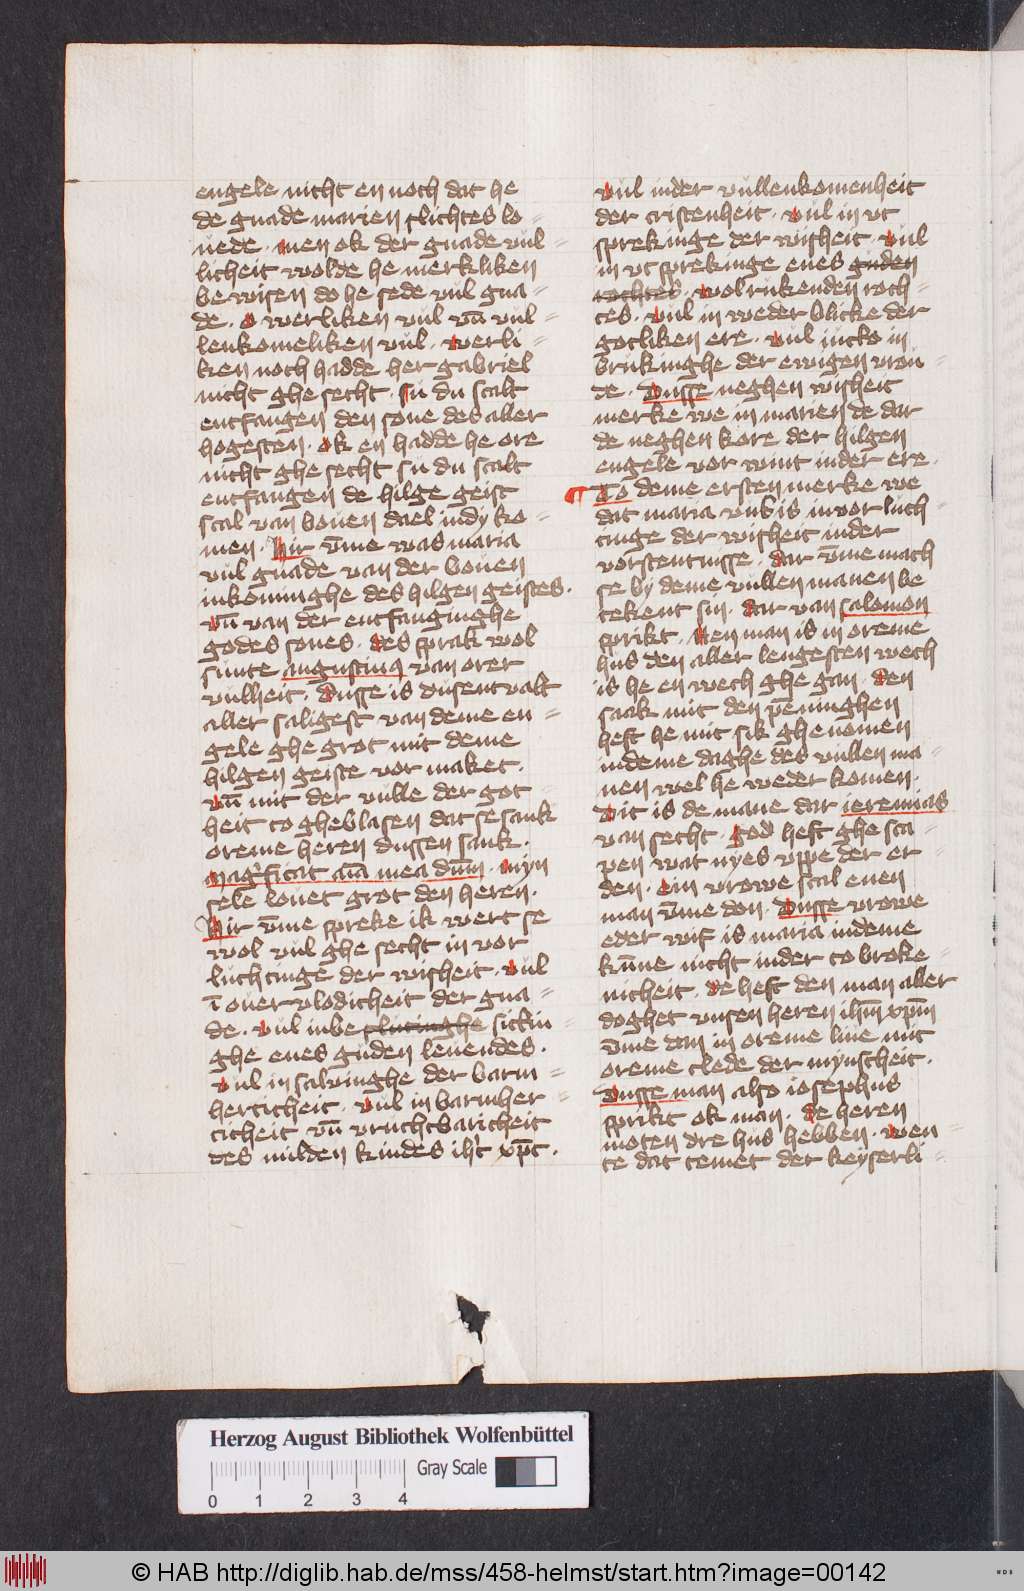 engele nicht en noch dat he
de gnade marien slichtes lo=
uede. men ok der gnade vul=
licheit wolde he merkliken
bewisen do he sede vul gna=
de. O werliken vul vn̄ vul=
lenkomeliken vul. werli=
ken noch hadde her gabriel
nicht ghe secht. sü du scalt
entfangen den sone des aller
hogesten. ok en hadde he ore
nicht ghe secht sü du scalt
entfangen de hilge geist
scal van bouen dael in dy ko=
men. Hir v̄me was maria
vul gnade van der bouen
inkōminghe des hilgen geistes.
vn̄ van der entfanginghe
godes sones. des sprak wol
sunte augustinus van orer
vulheit. Dusse is dusentvalt
aller saligest van deme en=
gele ghe grot mit deme
hilgen geiste vor maket.
vn̄ mit der vulle der got=
heit to gheblasen dat se sank
oreme heren dussen sank.
Magnificat aīa mea dn̄m. Myn
sele louet grot den heren.
Hir v̄me spreke ik wert se
wol vul ghe secht in vor
luchtinge der wisheit. vul
ī ouervlodicheit der gna=
de. vul in be plutinghe sickin=
ghe enes guden leuendes.
vul in saluinghe der barm=
herticheit. vul in barmher=
ticheit vn̄ vruchtbaricheit
des milden kindes ih̄c xp̄c.
vul in der vullenkomenheit
der cristenheit. vul in vt
sprekinge der wisheit. vul
in vt sprekinge enes guden
rochtes. wol rukenden roch=
tes. vul in wederblicke der
gotliken ere. vul jucto in
brukinghe der ewigen vrou=
de. Dusse neghen wisheit
merke we in marien de dar
de neghen kore der hilgen
engele vor wint in der ere.
¶ To deme ersten merke we
dat maria vns is in vor luch=
tinge der wisheit in der
vorstentnisse. dar v̄me mach
se by deme vullen manen be
tekent sin. dar van salomon
sprikt. Men man is in oreme
hus den aller lengesten wech
is he en wech ghe gan. den
saak mit den pēninghen
heft he mit sik ghe nomen
in deme daghe des vullen ma=
nen wel he weder komen.
Dit is de mane dar ieremias
van secht. god heft ghe sca=
pen wat nyes vppe der er=
den. ein vrowe scal enen
man v̄me don. Dusse vrowe
eder wif is maria in deme
kūne nicht in der to broke=
nicheit. de heft den man aller
doghet vnsen heren ih̄m xp̄m
v̄me dan in oreme liue mit
oreme clede der mynscheit.
Dusse man also iosephus
sprikt ok man. de heren
moten dre hus hebben. wen=
te dat temet der keyserli=
Herzog August Bibliothek Wolfenbüttel
Gray Scale
0 1 2 3 4
© HAB http://diglib.hab.de/mss/458-helmst/start.htm?image=00142